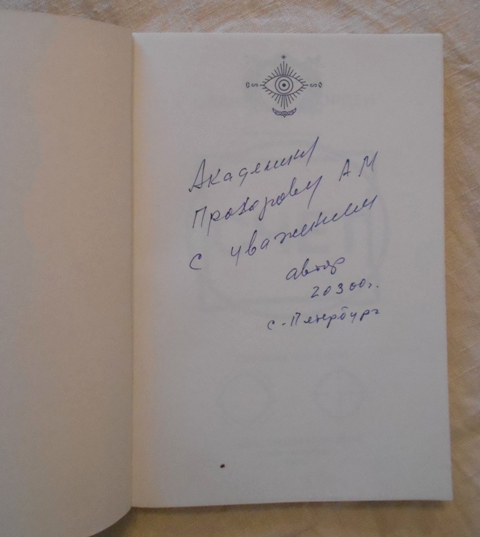 Академику
Прохорову А М
с уважением
автор
20300г.
С-Петербург